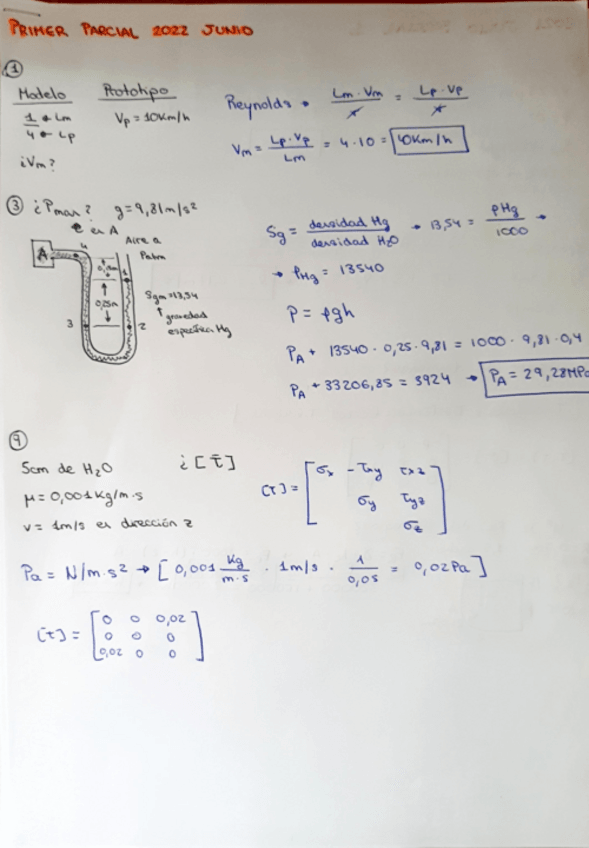 PRIMER PARCIAL 2022 JUNIO
①
Modelo Prototipo
1/4 Lm Lp
Vp = 10Km/h
¿Vm?
Reynolds • Lm·Vm/ν = Lp·Vp/ν
Vm = Lp·Vp/Lm = 4·10 = 40Km/h
③ ¿Pman? g = 9,81m/s²
en A
A
4
Aire a
Patm
1
0,25m
Sgm=13,54
gravedad
específica Hg
3
2
Sg = densidad Hg/densidad H₂O → 13,54 = ρHg/1000 →
→ ρHg = 13540
P = ρgh
PA + 13540 · 0,25 · 9,81 = 1000 · 9,81 · 0,4
PA + 33206,85 = 3924 → PA = 29,28MPa
⑨
5cm de H₂O ¿[τ̄]
μ = 0,001Kg/m·s
v = 1m/s en dirección z
[τ] = [σx -τxy τxz
σy τyz
σz]
Pa = N/m·s² → [0,001 Kg/m·s · 1m/s · 1/0,05 = 0,02Pa]
[τ] = [0 0 0,02
0 0 0
0,02 0 0]